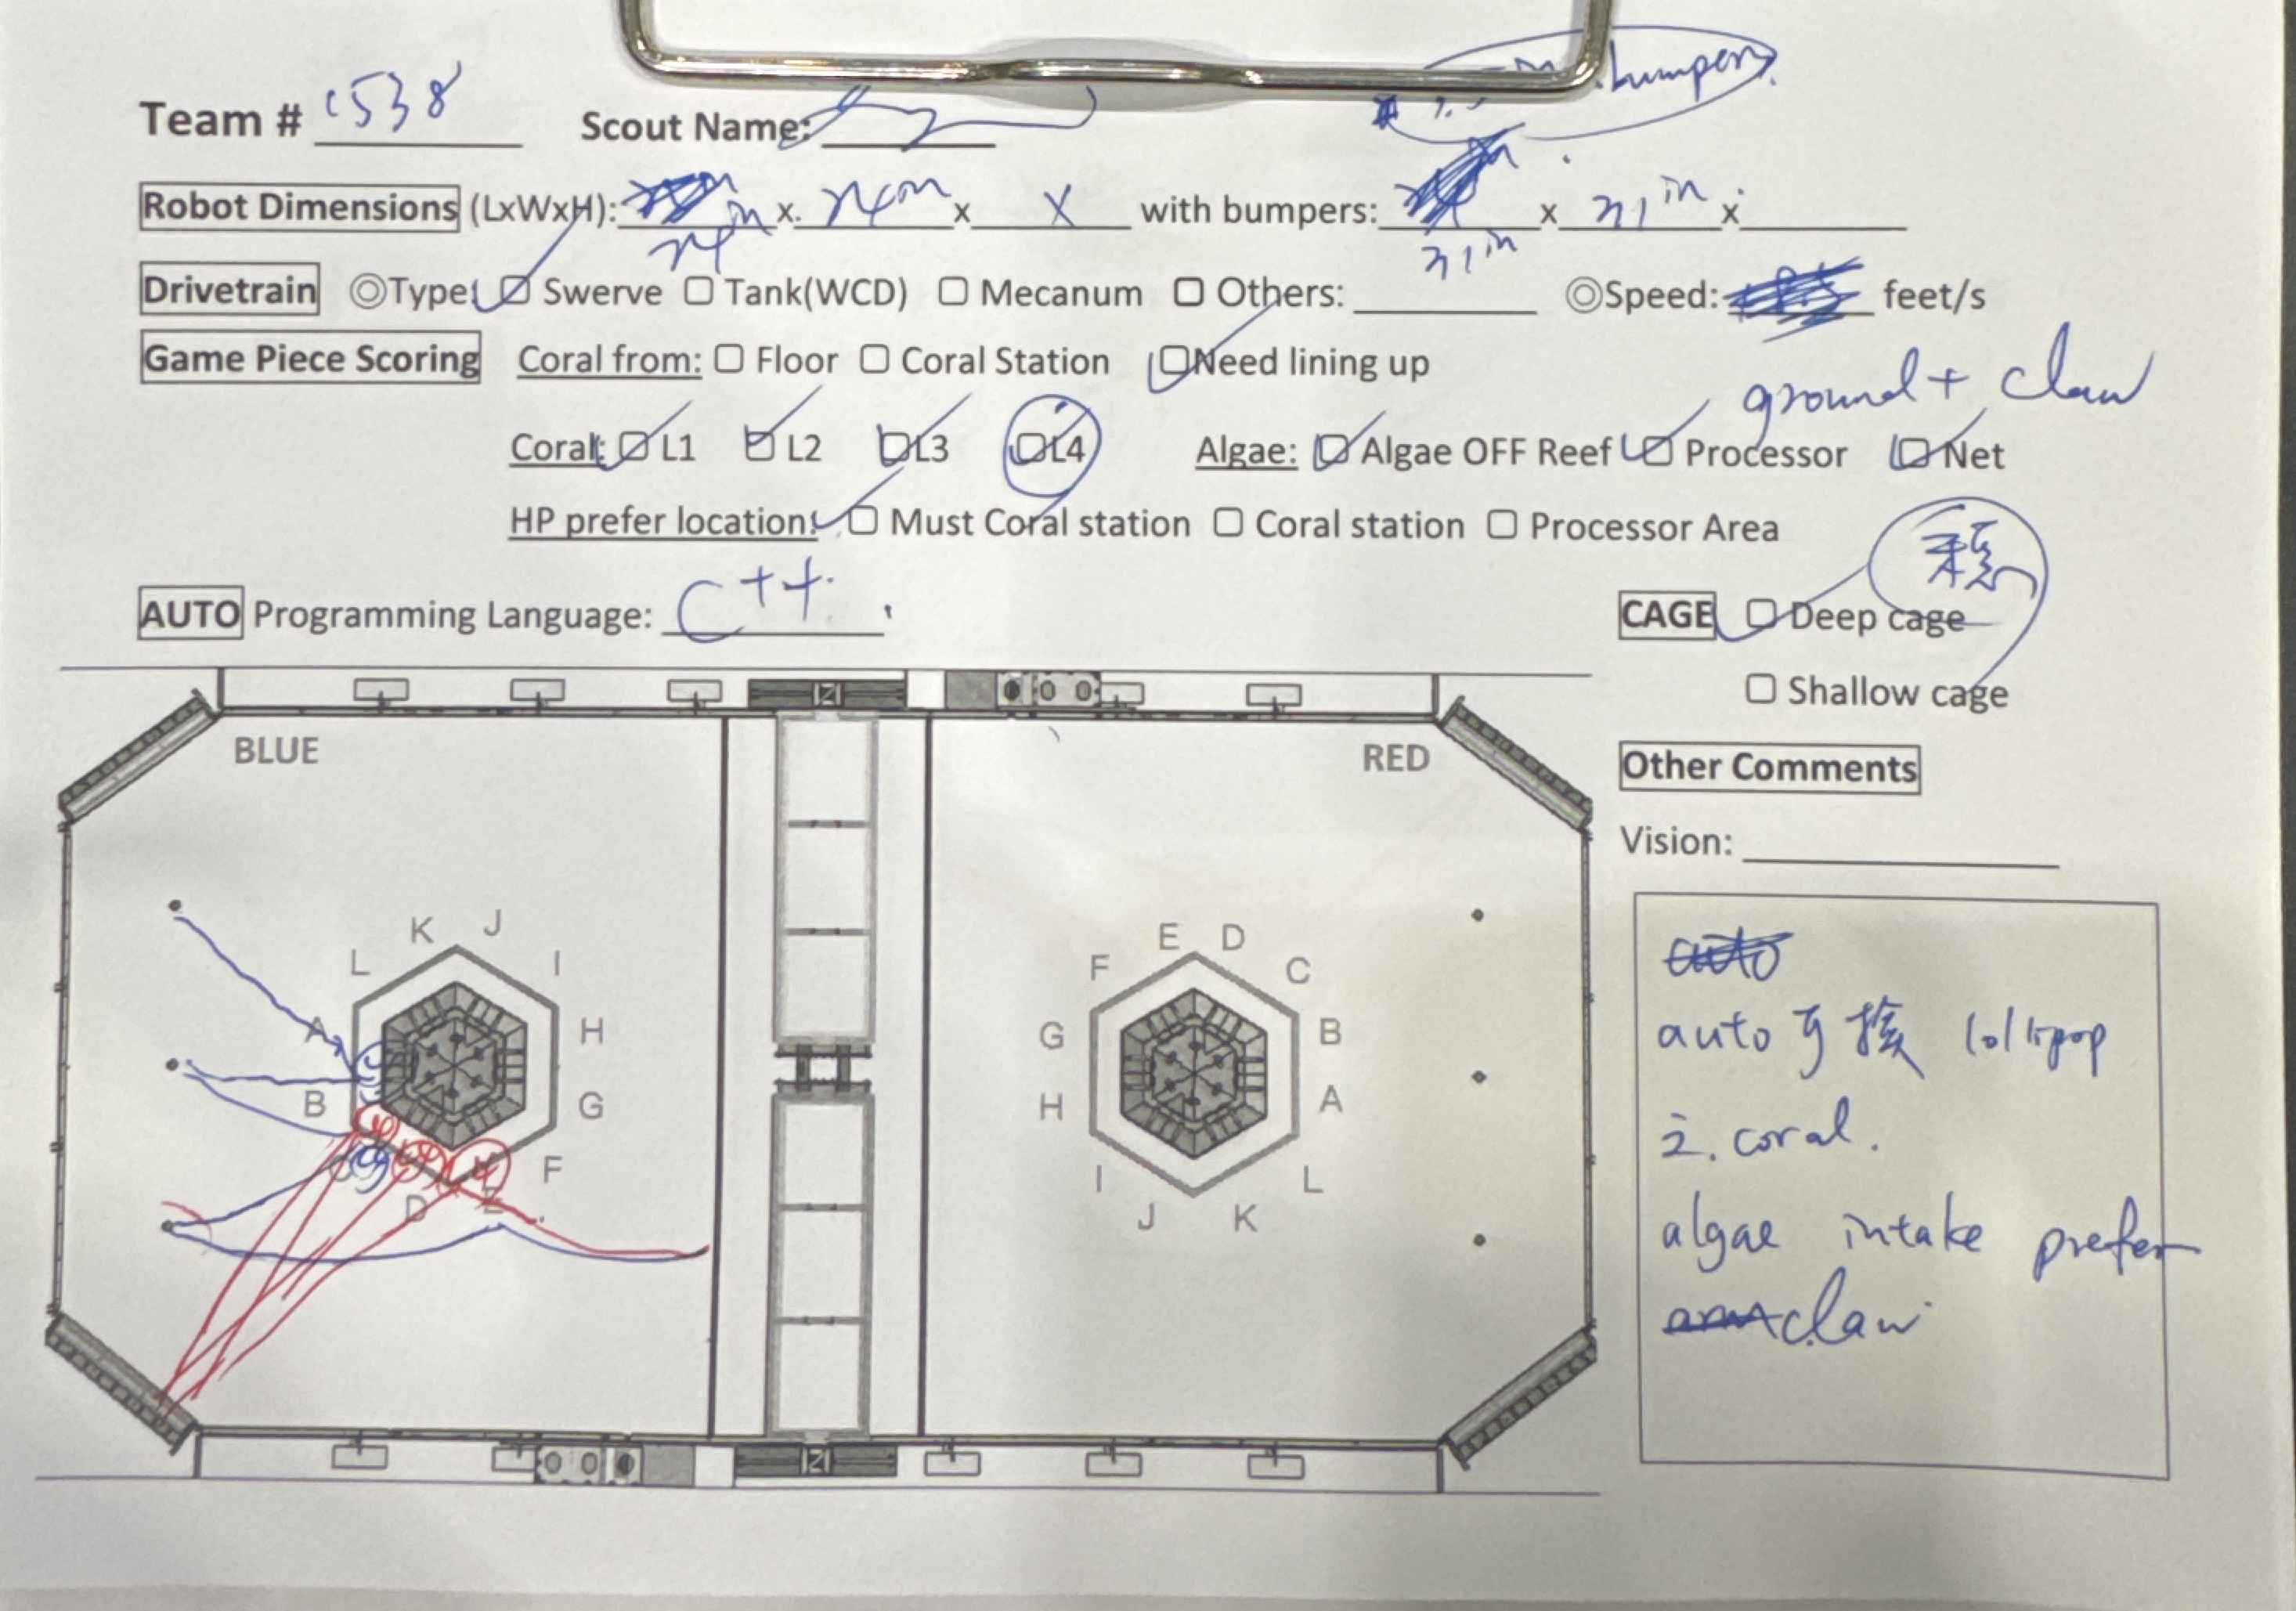 bumpers
Team # 1538 Scout Name:
Robot Dimensions (LxWxH): 24in x 24in x X with bumpers: 31in x 31in x
Drivetrain ◎Type: ☑ Swerve ☐ Tank(WCD) ☐ Mecanum ☐ Others: ◎Speed: feet/s
Game Piece Scoring Coral from: ☐ Floor ☐ Coral Station ☑ Need lining up
ground + claw
Coral: ☑ L1 ☑ L2 ☑ L3 ☑ L4 Algae: ☑ Algae OFF Reef ☑ Processor ☑ Net
HP prefer location: ☑ Must Coral station ☐ Coral station ☐ Processor Area
穩
AUTO Programming Language: C++
CAGE ☑ Deep cage
☐ Shallow cage
BLUE RED
Other Comments
Vision:
K J
L I
A H
B G
C F
D E
E D
F C
G B
H A
I L
J K
auto
auto 可接 lollipop
2. coral.
algae intake prefer
arm claw